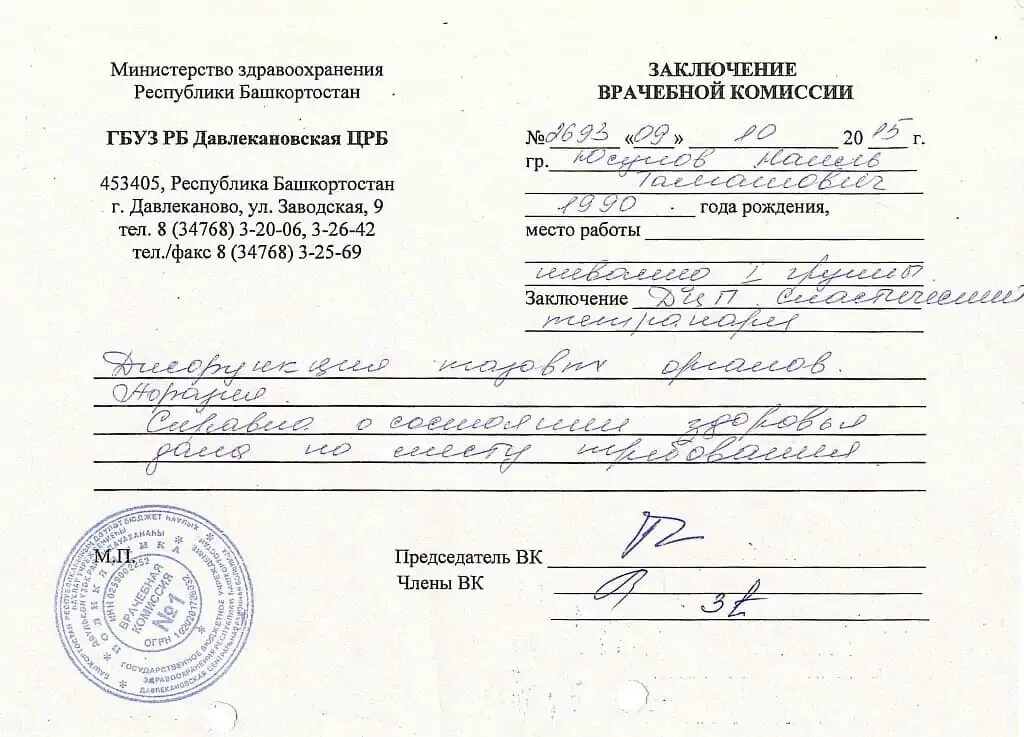 Министерство здравоохранения
Республики Башкортостан
ГБУЗ РБ Давлекановская ЦРБ
453405, Республика Башкортостан
г. Давлеканово, ул. Заводская, 9
тел. 8 (34768) 3-20-06, 3-26-42
тел./факс 8 (34768) 3-25-69
ЗАКЛЮЧЕНИЕ
ВРАЧЕБНОЙ КОМИССИИ
№2693 «09» 10 2015 г.
гр. Юсупов Наиль
1990 года рождения,
место работы
инвалид I группы
Заключение ДЦП. Спастический
тетрапарез
Дисфункция тазовых органов.
Справка о состоянии здоровья
дана по месту требования
М.П.
Председатель ВК
Члены ВК
ВРАЧЕБНАЯ
КОМИССИЯ
№1
ПОЛИКЛИНИКА